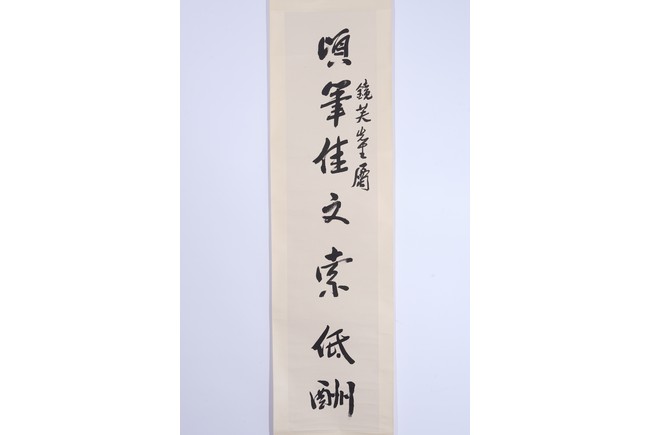 筆佳文索低酬
鏡芙先生屬